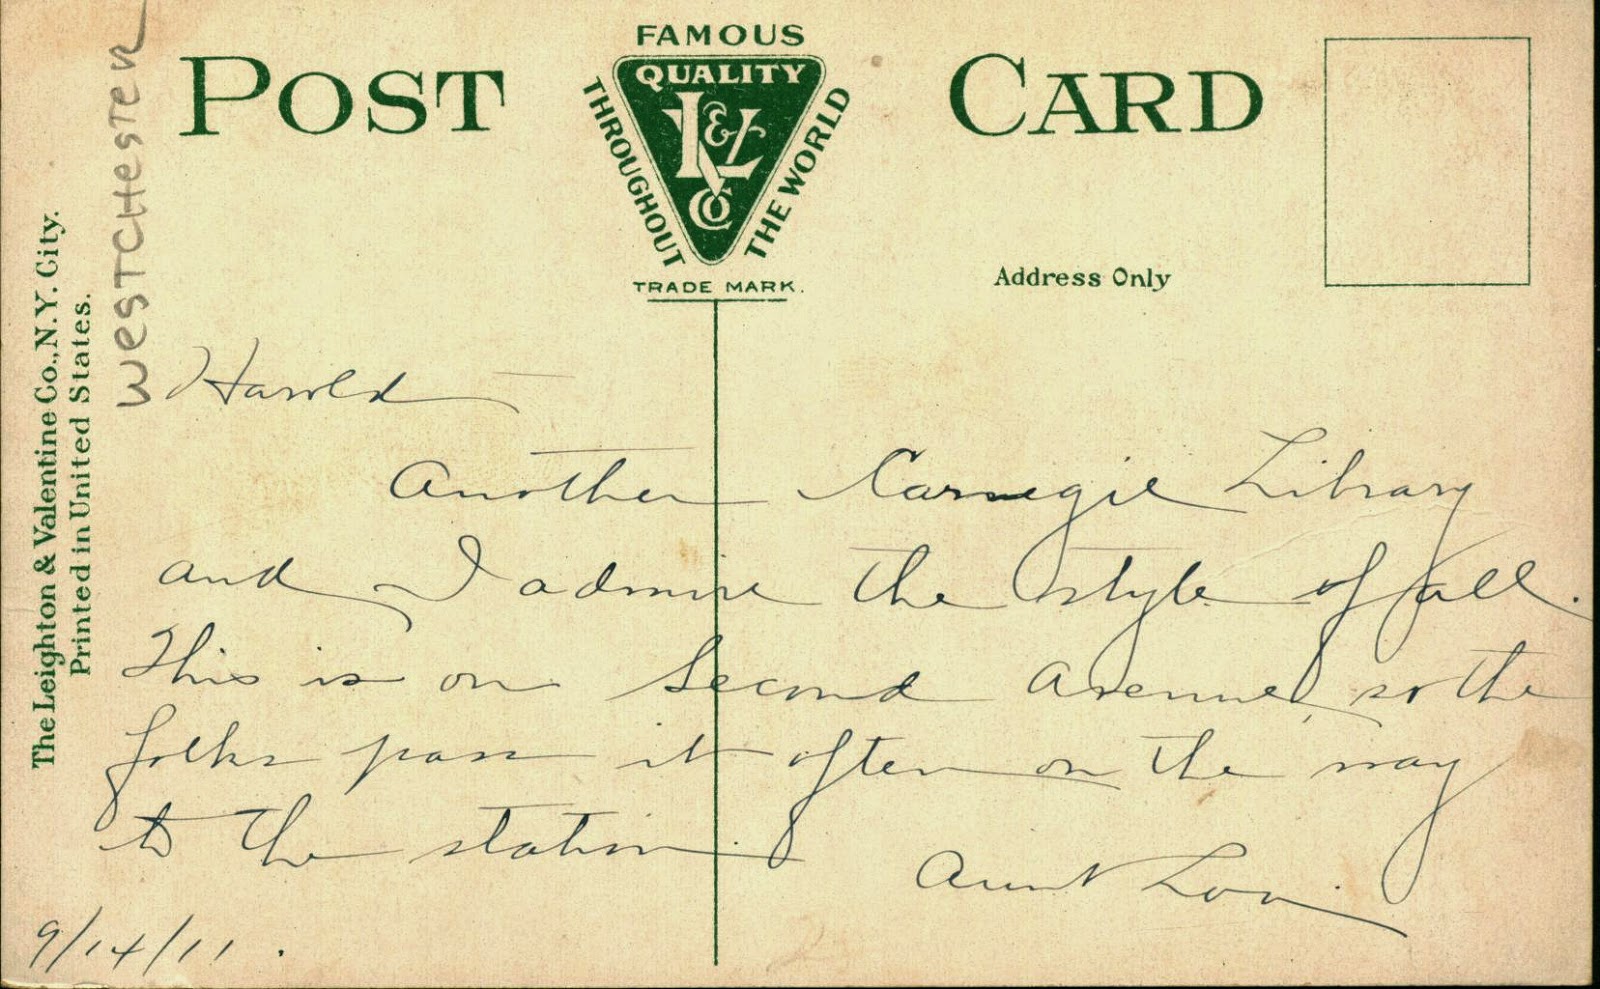 FAMOUS
POST CARD
QUALITY
L & V Co
THROUGHOUT THE WORLD
TRADE MARK.
Address Only
The Leighton & Valentine Co., N.Y. City.
Printed in United States.
WESTCHESTER
Harold
Another Carnegie Library
and I admire the style of all.
This is on Second Avenue, so the
folks pass it often on the way
to the station.
Aunt Lou.
9/14/11.